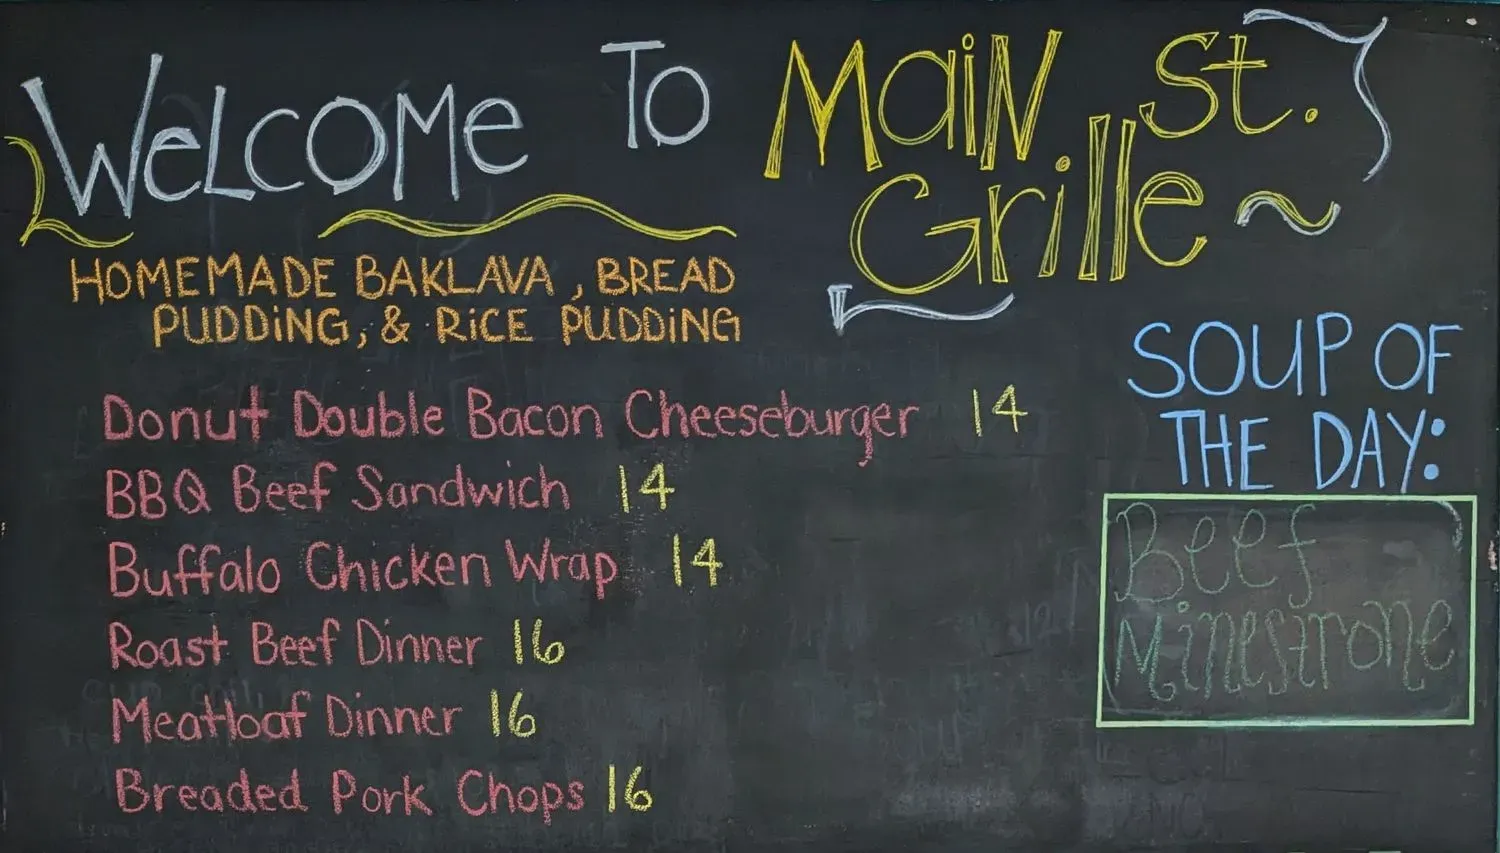 WELCOME TO MAIN St.
Grille ~
HOMEMADE BAKLAVA, BREAD
PUDDING, & RICE PUDDING
Donut Double Bacon Cheeseburger 14
BBQ Beef Sandwich 14
Buffalo Chicken Wrap 14
Roast Beef Dinner 16
Meatloaf Dinner 16
Breaded Pork Chops 16
SOUP OF
THE DAY:
Beef
Minestrone